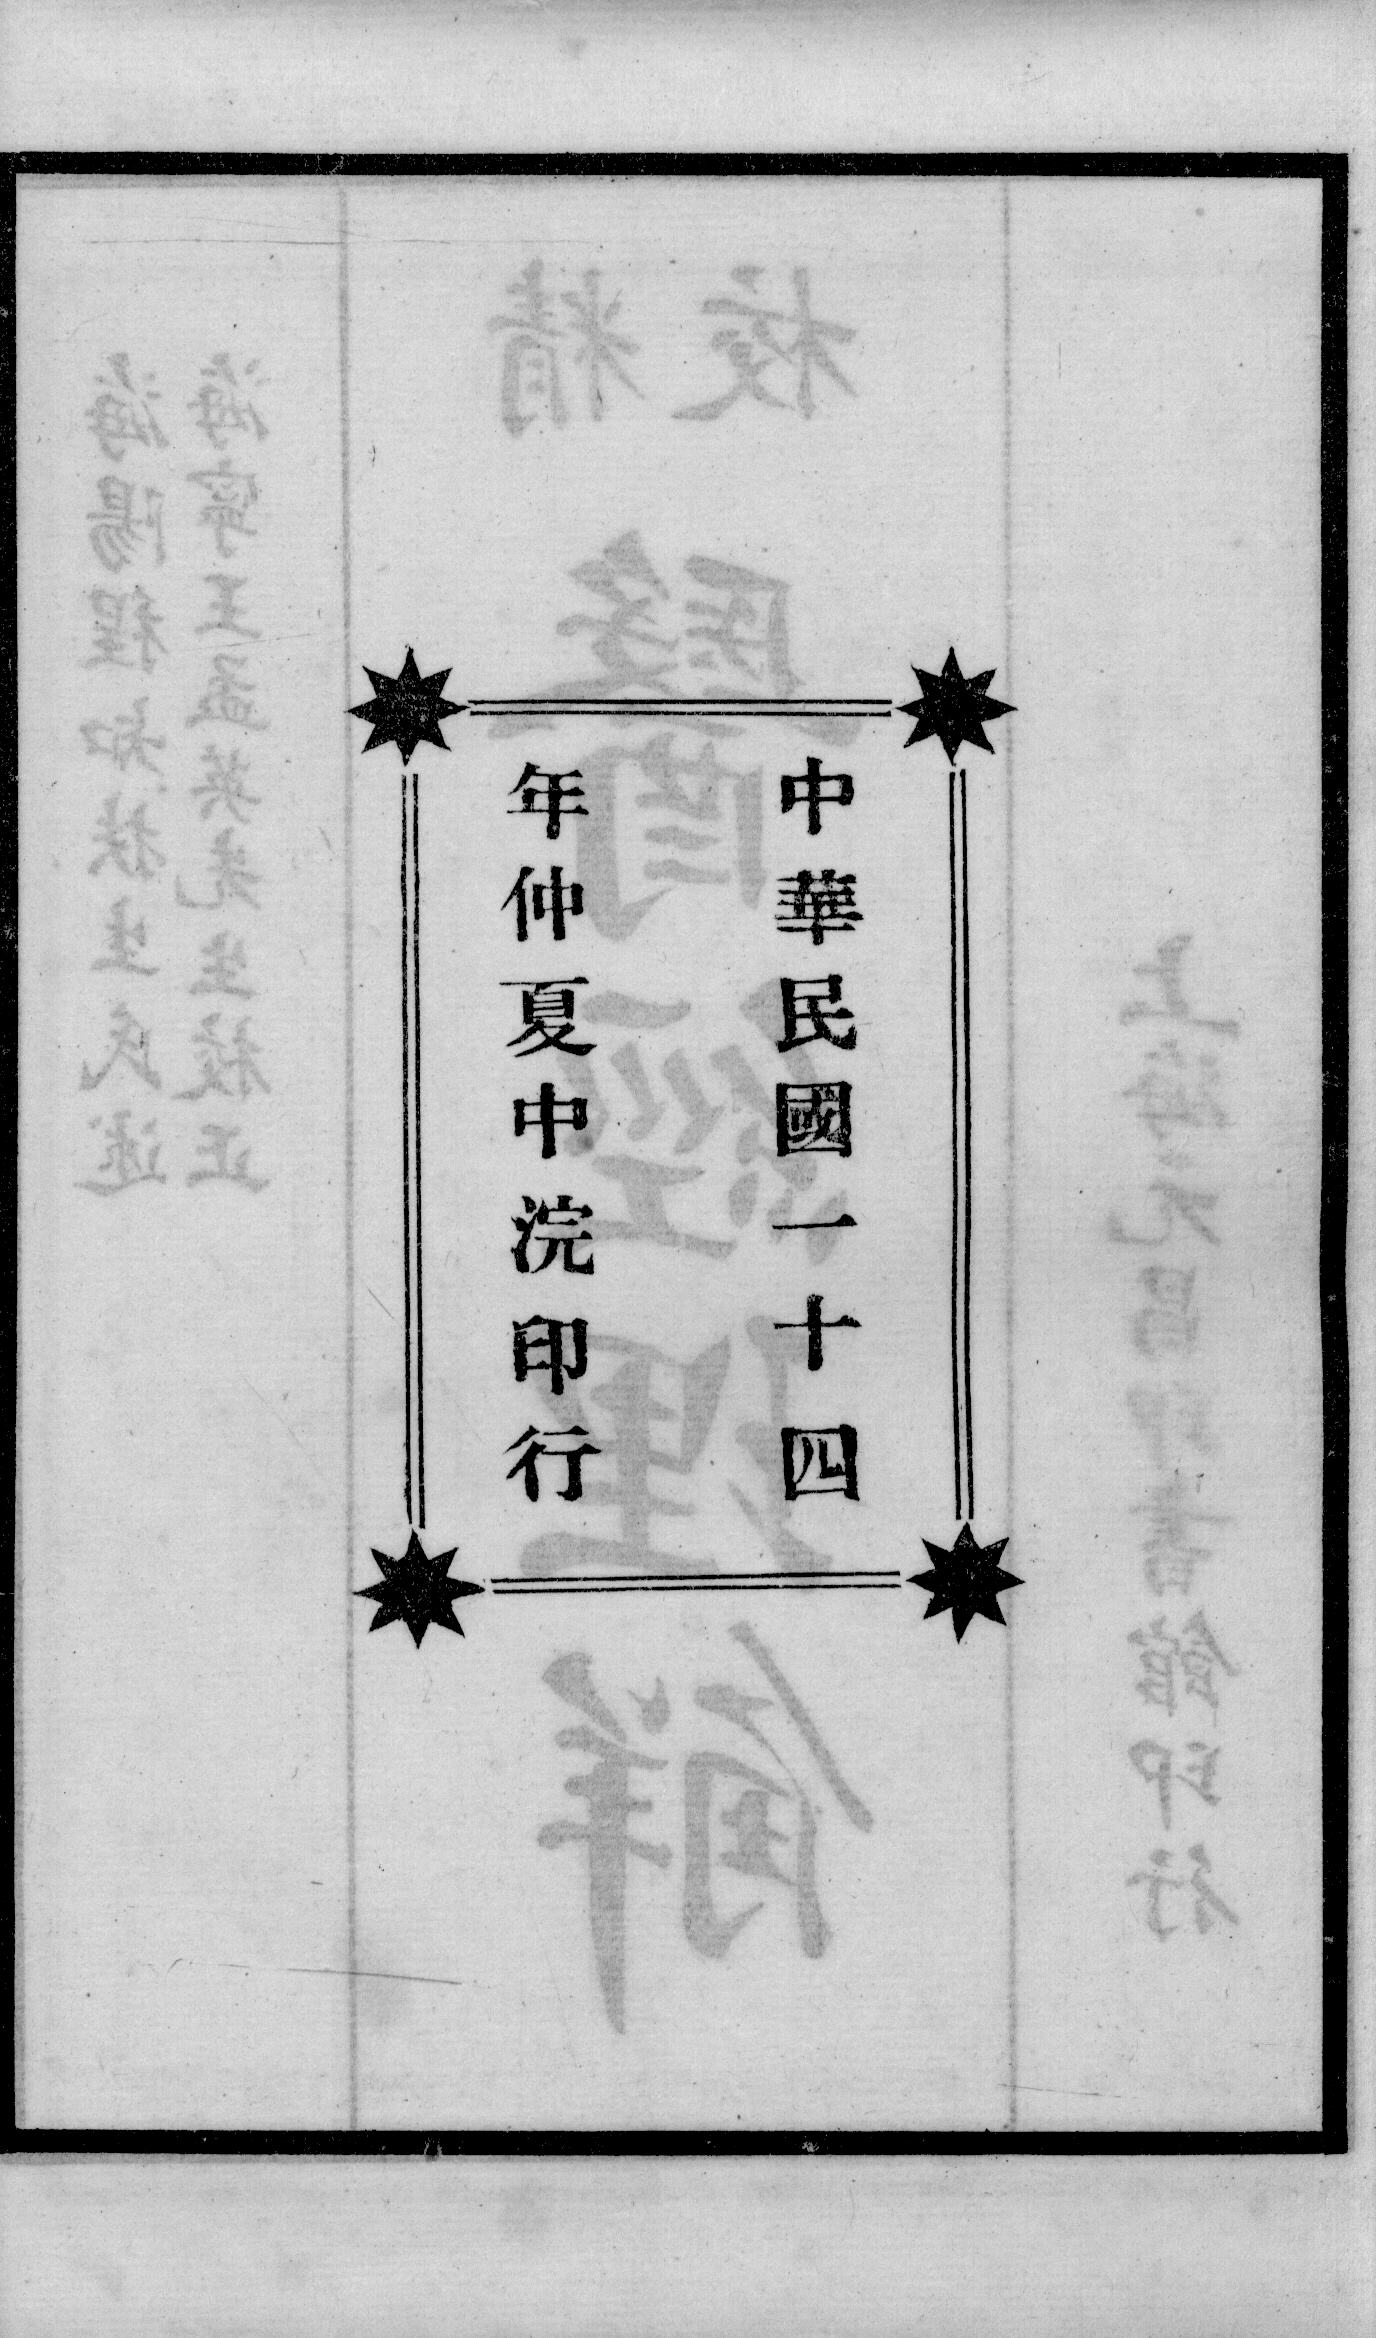 中華民國一十四
年仲夏中浣印行